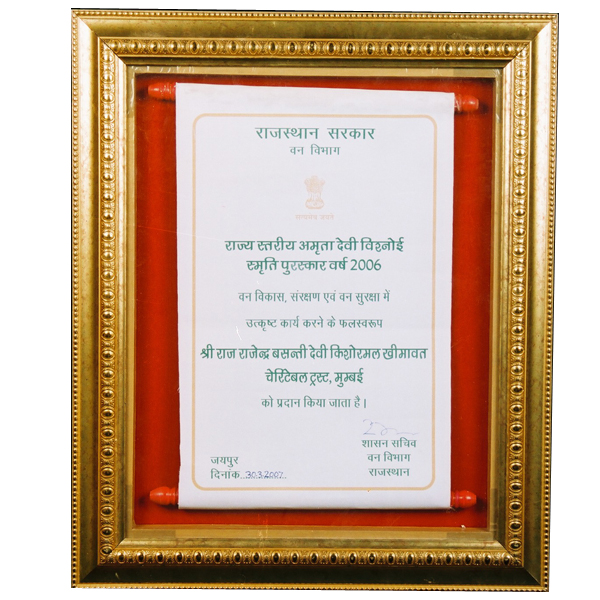 राजस्थान सरकार
वन विभाग
राज्य स्तरीय अमृता देवी विश्नोई
स्मृति पुरस्कार वर्ष 2006
वन विकास, संरक्षण एवं वन सुरक्षा में
उत्कृष्ट कार्य करने के फलस्वरूप
श्री राज राजेन्द्र बसन्ती देवी किशोरमल खीमावत
चेरिटेबल ट्रस्ट, मुम्बई
को प्रदान किया जाता है।
शासन सचिव
वन विभाग
राजस्थान
जयपुर
दिनांक 30.3.2007